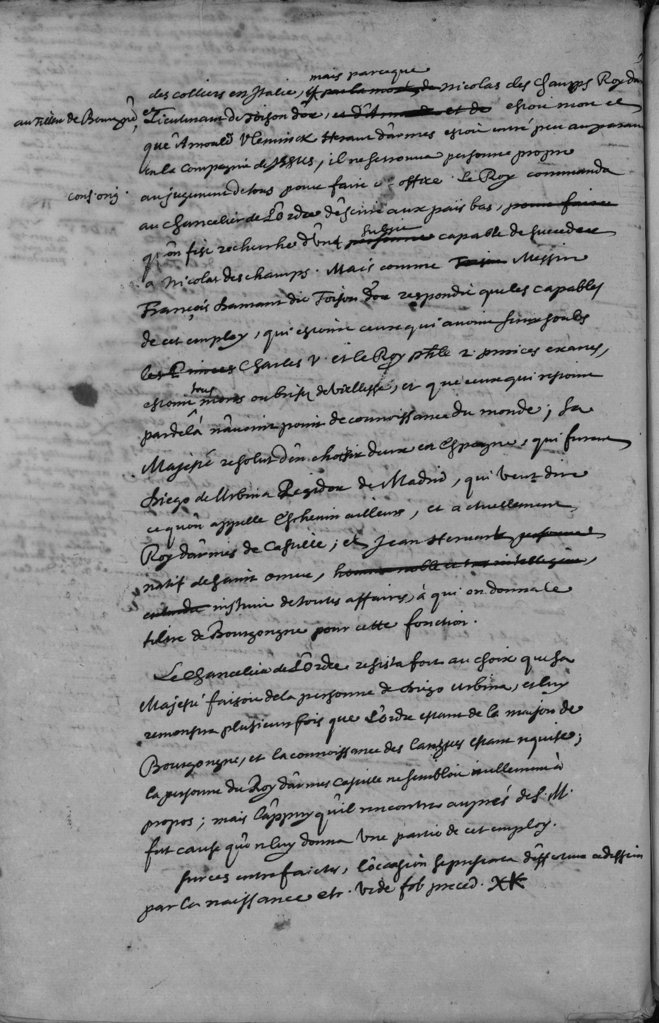 mais parceque
des colliers en Italie, et par la mort de Nicolas des champs Roy dar
au tiltre de Bourgogne, et Lieutenant de Toison dor, estoit mort et
que Arnould Vleminck Heraut darmes estoit entré peu auparavant
en la Compagnie de Jesus, il ne se trouva personne propre
au jugement de tous pour faire cet office. Le Roy commanda
au chancelier de L'ordre descrire aux pais bas, pour faire
qu'on fist recherche d'une personne capable de succeder
a Nicolas des champs. Mais comme Messire
François damant dit Toison dor respondit que les capables
de cet employ, qui estoient ceux qui avoient soubs
les Princes Charles V. et le Roy phle 2. exercés,
estoient tous morts ou brisez de viellesse, et que ceux qui restoient
par delà n'avoient point de connoissance du monde; Sa
Majesté resolut d'en choisir deux en Espagne, qui furent
Diego de Urbina Regidor de Madrid, qui veut dire
ce qu'on appelle Eschevin ailleurs, et actuellement
Roy d'armes de Castille; et Jean Hervart personne
natif de Saint omer, homme noble et tres intelligent,
instruit de toutes affaires, à qui on donna le
tiltre de Bourgongne pour cette fonction.
Le Chancelier de L'ordre resista fort au choix que Sa
Majesté faisoit de la personne de Diego Urbina, et luy
remonstra plusieurs fois que L'ordre estant de la maison de
Bourgongne, et la connoissance des langues estant requise;
la personne du Roy d'armes Castille ne sembloit nullement à
propos; mais l'appuy qu'il rencontra auprés de S. M.
fut cause qu'on luy donna une partie de cet employ.
sur ces entrefaictes, l'occasion se presenta d'effectuer ce dessein
par la naissance etc. vide fol. preced.